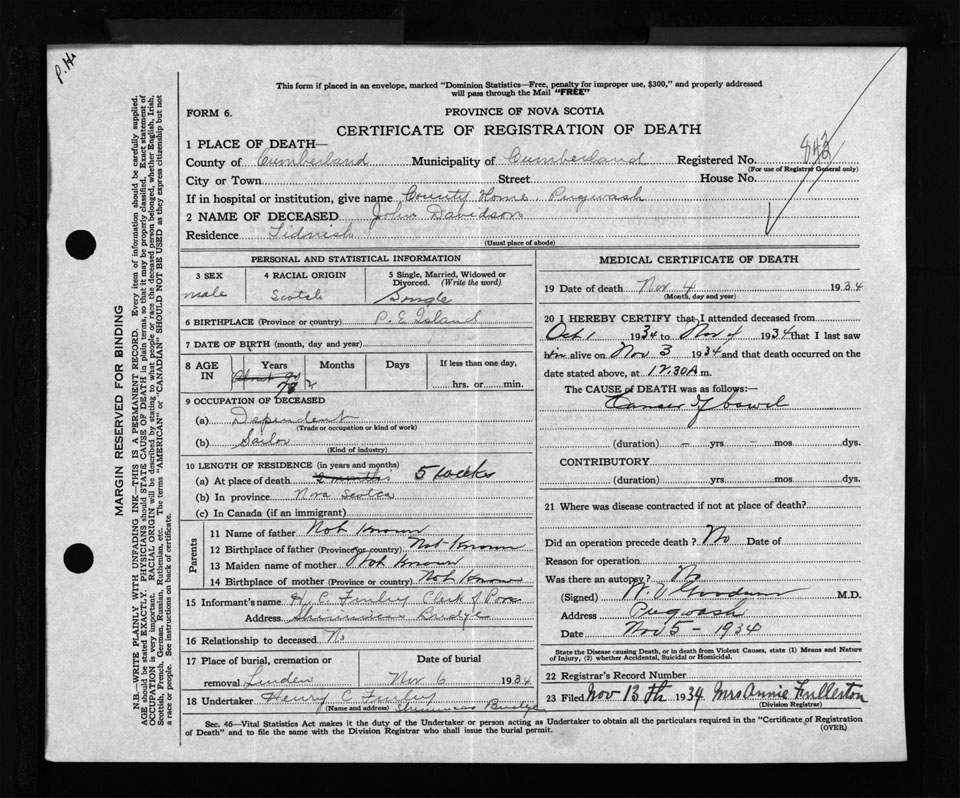 P.H.
This form if placed in an envelope, marked "Dominion Statistics—Free, penalty for improper use, $300," and properly addressed
will pass through the Mail "FREE"
FORM 6.
PROVINCE OF NOVA SCOTIA
CERTIFICATE OF REGISTRATION OF DEATH
1 PLACE OF DEATH—
County of Cumberland Municipality of Cumberland Registered No. 842
(For use of Registrar General only)
City or Town Street House No.
If in hospital or institution, give name County Home. Pugwash
2 NAME OF DECEASED John Davidson
Residence Tidnish
(Usual place of abode)
PERSONAL AND STATISTICAL INFORMATION
3 SEX 4 RACIAL ORIGIN 5 Single, Married, Widowed or
Divorced. (Write the word)
male Scotch Single
6 BIRTHPLACE (Province or country) P. E Island
7 DATE OF BIRTH (month, day and year)
8 AGE IN Years Months Days If less than one day,
hrs. or min.
9 OCCUPATION OF DECEASED
(a) Dependent
(Trade or occupation or kind of work)
(b) Sailor
(Kind of industry)
10 LENGTH OF RESIDENCE (in years and months)
(a) At place of death 2 months 5 weeks
(b) In province Nova Scotia
(c) In Canada (if an immigrant)
Parents
11 Name of father Not Known
12 Birthplace of father (Province or country) Not Known
13 Maiden name of mother Not Known
14 Birthplace of mother (Province or country) Not Know
15 Informant's name H. C. Finley Clerk of Poor
Address Shinimicas Bridge
16 Relationship to deceased No
17 Place of burial, cremation or Date of burial
removal Linden Nov 6 1934
18 Undertaker Henry C Finley
(Name and address) Shinimicas Bridge
MEDICAL CERTIFICATE OF DEATH
19 Date of death Nov 4 1934
(Month, day and year)
20 I HEREBY CERTIFY that I attended deceased from
Oct 1 1934 to Nov 4 1934 that I last saw
him alive on Nov 3 1934 and that death occurred on the
date stated above, at 12.30 A m.
The CAUSE OF DEATH was as follows:—
Cancer of bowel
(duration) – yrs – mos dys.
CONTRIBUTORY
(duration) yrs. mos. dys.
21 Where was disease contracted if not at place of death?
Did an operation precede death? No Date of
Reason for operation
Was there an autopsy? No
(Signed) M.D.
Address Pugwash
Date Nov 5 – 1934
State the Disease causing Death, or in death from Violent Causes, state (1) Means and Nature
of Injury, (2) whether Accidental, Suicidal or Homicidal.
22 Registrar's Record Number
23 Filed Nov 13th 1934 Mrs Annie Fullerton
(Division Registrar)
Sec. 46—Vital Statistics Act makes it the duty of the Undertaker or person acting as Undertaker to obtain all the particulars required in the "Certificate of Registration
of Death" and to file the same with the Division Registrar who shall issue the burial permit.
(OVER)
MARGIN RESERVED FOR BINDING
N.B.—WRITE PLAINLY WITH UNFADING INK—THIS IS A PERMANENT RECORD. Every item of information should be carefully supplied.
AGE should be stated EXACTLY. PHYSICIANS should STATE CAUSE OF DEATH in plain terms, so that it may be properly classified. Exact statement of
OCCUPATION is very important. RACIAL ORIGIN will be described by stating to what people or race the deceased person belonged, whether English, Irish,
Scottish, French, German, Russian, Ruthenian, etc. The terms "AMERICAN" or "CANADIAN" SHOULD NOT BE USED as they express citizenship but not
a race or people. See instructions on back of certificate.